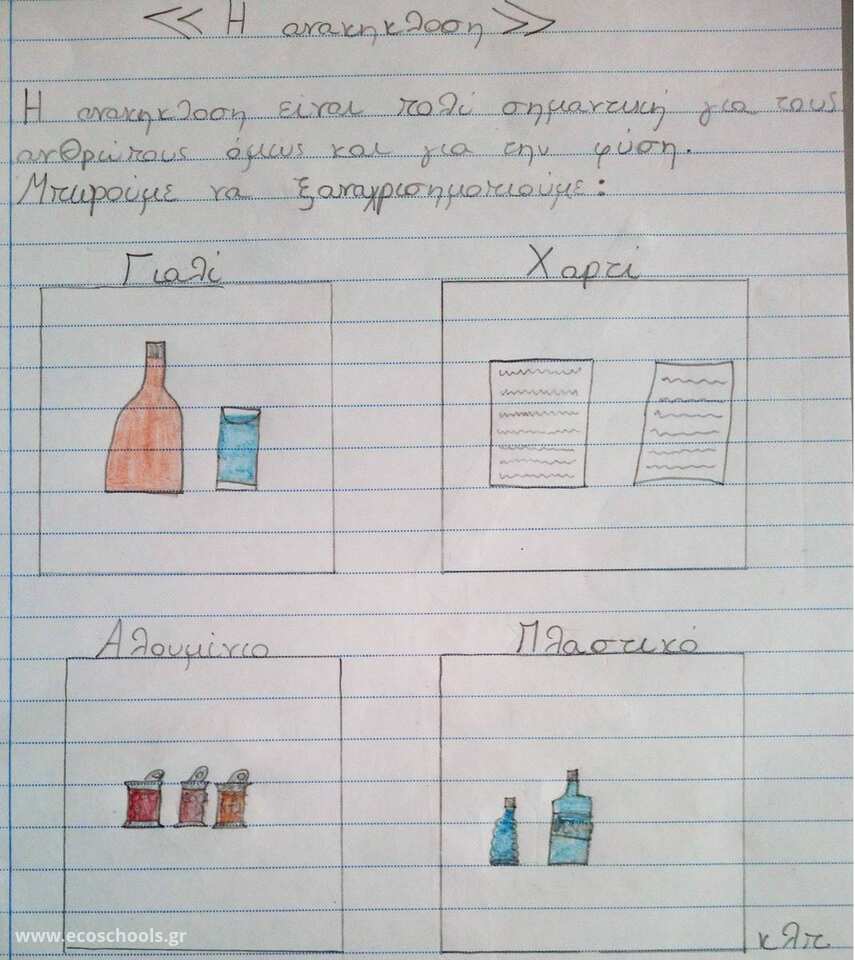 << Η ανακηκλοση >>
Η ανακηκλοση είναι πολί σημαντική για τους
ανθρώπους όμως και για την φύση.
Μπιρούμε να ξαναχρισηματιούμε:
Γιαλί Χαρτί
Αλουμίνιο Πλαστικό
www.ecoschools.gr κλπ